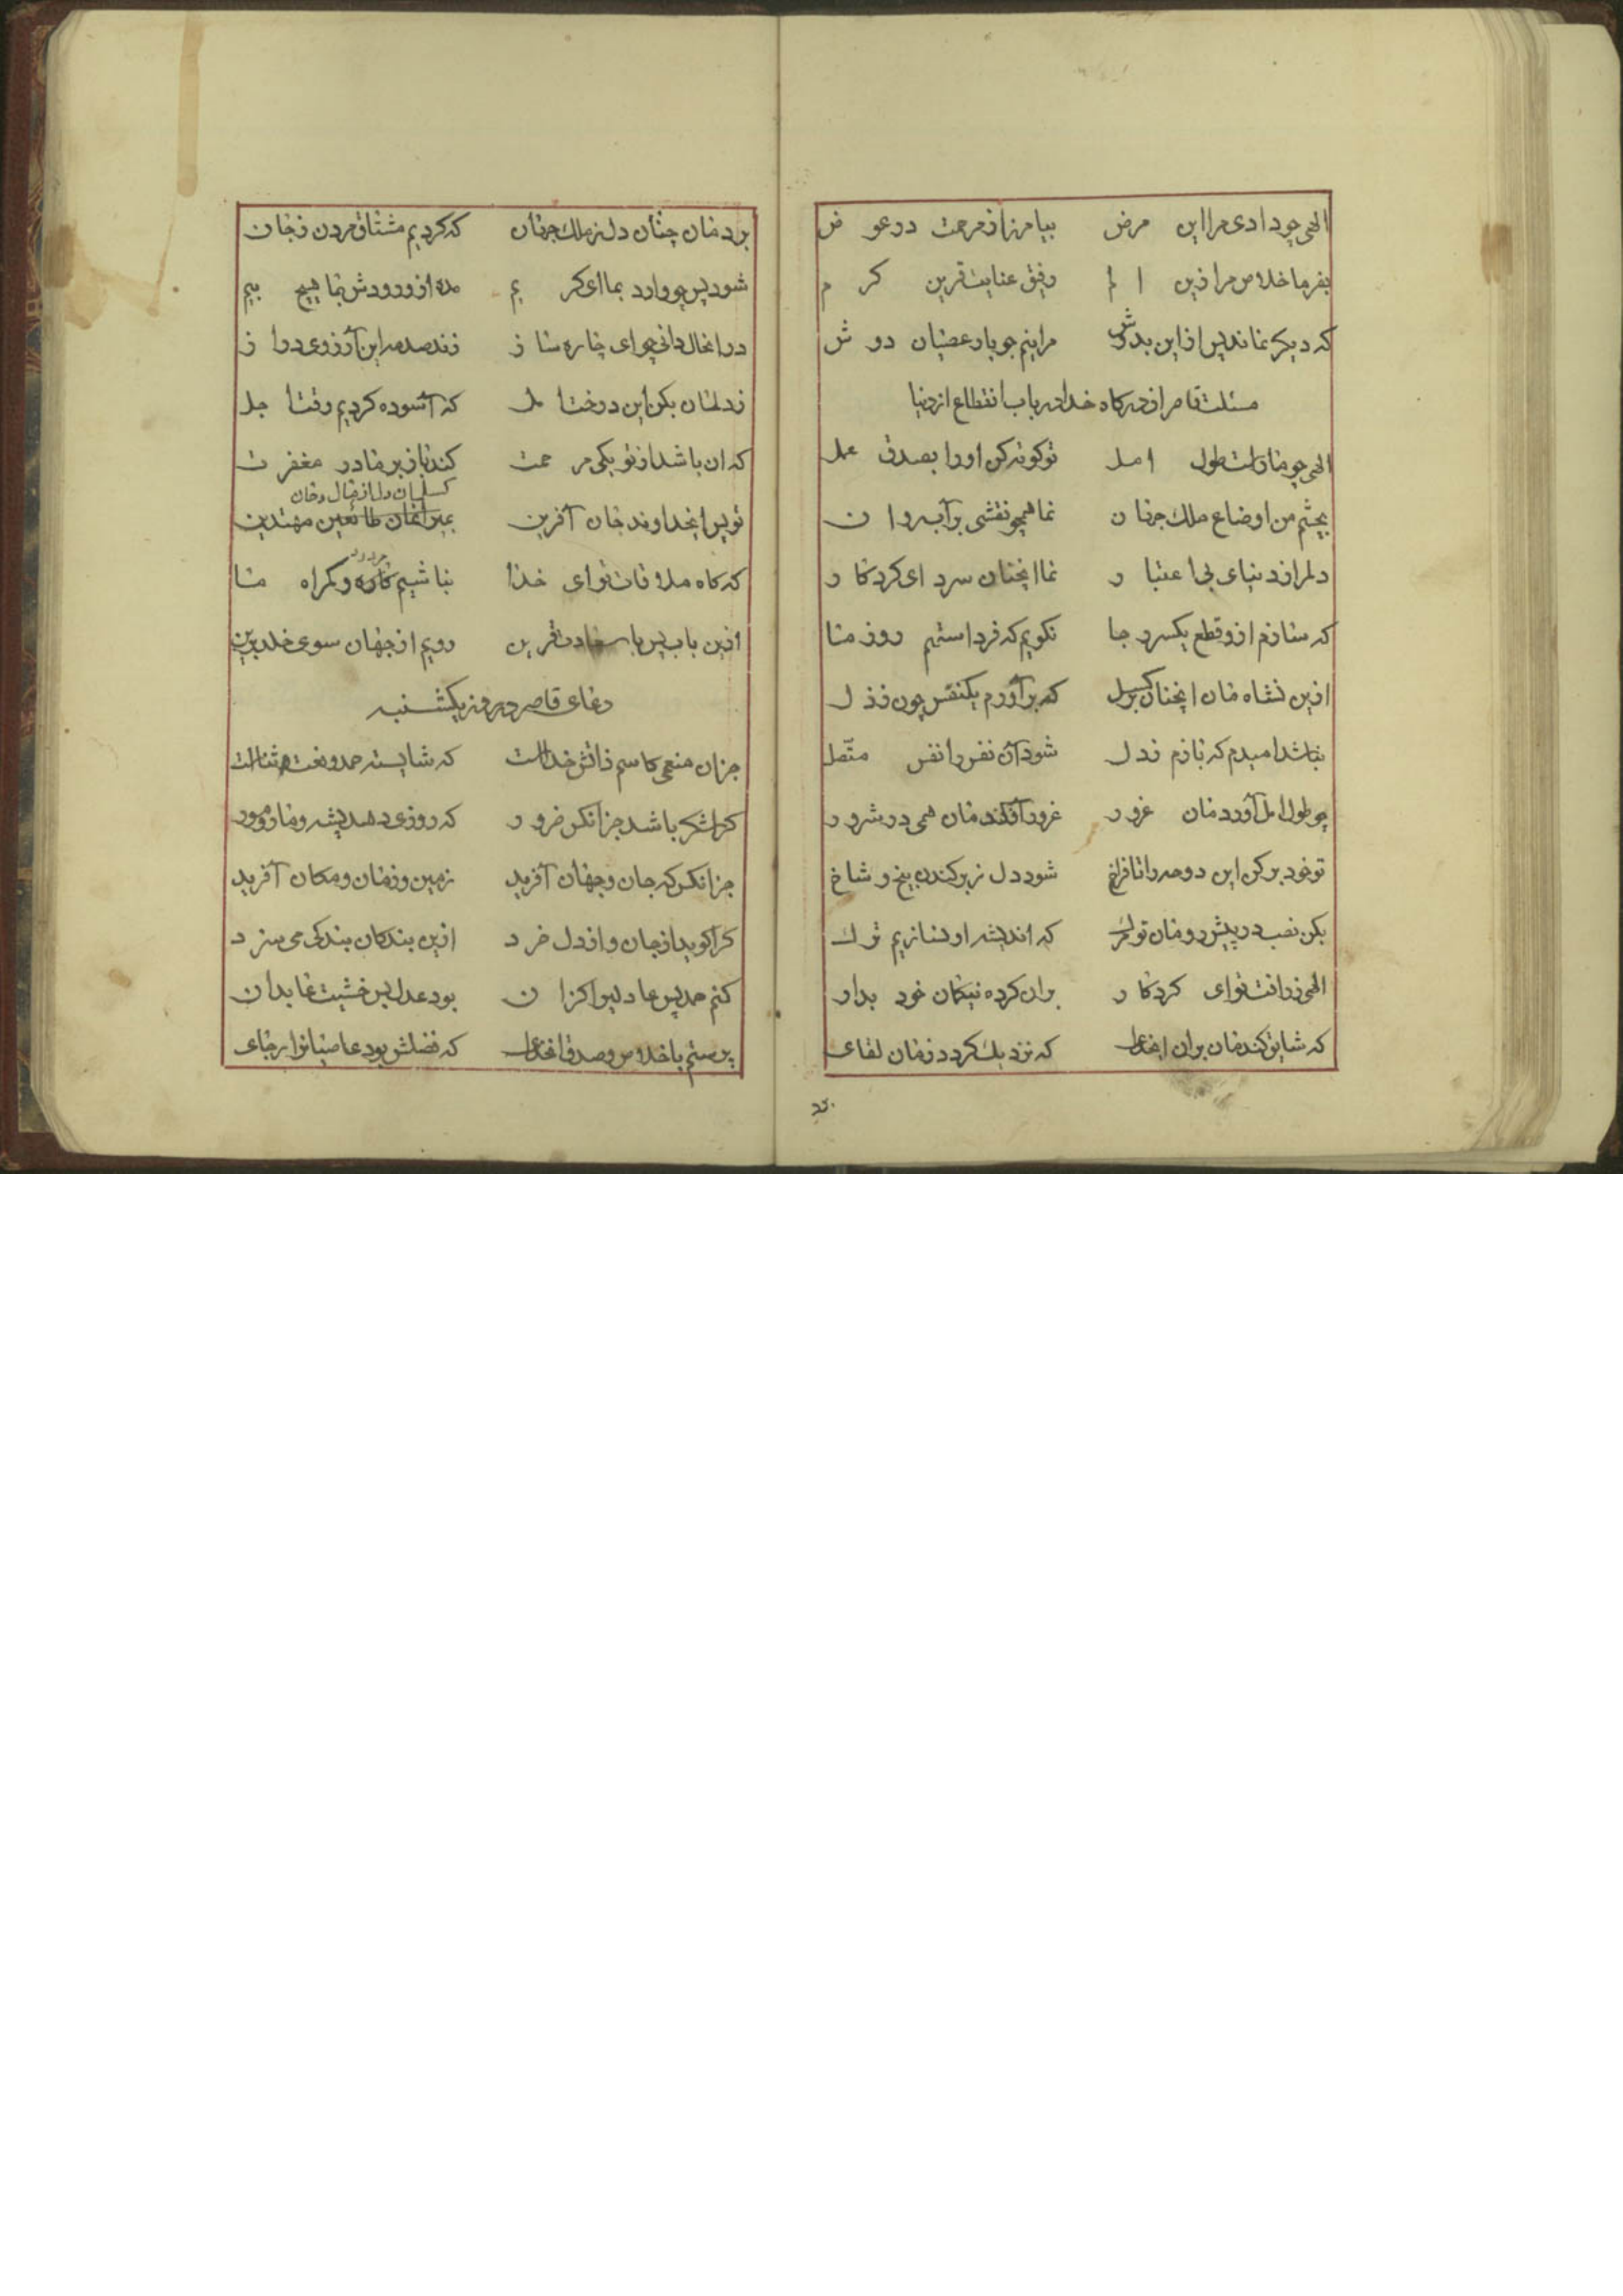 الهی چو دادی مرا این مرض بیامرز از مرحمت در عوض
بفرما خلاص مرا زین الم رفیق عنایت قرین کرم
که دیکر نماند پس از این بدوش مرا نیم جو بار عصیان دوش
مسئلت قاصر از درکاه خدا در باب انقطاع از دنیا
الهی چو ما راست طول امل تو کوته کن او را بصدق عمل
بچشم من اوضاع ملک جهان نما همچو نقشی بر آب روان
دلم را ز دنیای بی اعتبار نما انچنان سرد ای کردکار
که سازم ازو قطع یکسر رجا نکویم که فرداستیم روز ما
ازین نشاه مان انچنان بر کسل که برآورم یکنفس چون ز دل
نباشد امیدم که بازم ز دل شود آن نفس را نفس متّصل
چو طول امل آورد مان غرور غرور آفکند مان همی در شرور
تو خود برکن این دوحه را تا فراخ شود دل ز برکندن بیخ و شاخ
بکن نصب در پیش رو مان تو مرک که اندیشه او نسازیم ترک
الهی ز رافت تو ای کردکار بران کرده نیکان خود بدار
که شایق کند مان بران ایخدای که نزدیک کردد زمان لقای
برد مان چنان دل ز ملک جهان که کردیم مشتاق مردن ز جان
شود پس چو وارد بما ای کریم مده از ورودش بما هیچ بیم
در انحال دانی چو ای چاره ساز زند صدمه این آرزوی دراز
ز دلمان بکن این درخت امل که آسوده کردیم وقت اجل
که ان باشد از تو یکی مرحمت کند باز بر ما در مغفرت
کسلمان دل از مال و مان
تو پس ایخداوند جان آفرین بمیرانمان طائعین مهتدین
مردود
که کاه ملاقات تو ای خدا نباشیم کاره و کمراه ما
ازین باب پس با سعادت قرین رویم از جهان سوی خلد برین
دعای قاصر در روز یکشنبه
جز ان منعمی کاسم ذاتش خداست که شایسته حمد و نعت و ثناست
کرا شکر باشد جز انکس ضرور که روزی دهد پشه و مار و مور
جز انکس که جان و جهان آفرید زمین و زمان و مکان آفرید
کرا کوید از جان و از دل خرد ازین بندکان بندکی می سزد
کنم حمد پس عادلیرا کزان بود عدل پس خشیت عابدان
پرستم باخلاص و صدق انخدای که فضلش بود عاصیانرا رجای